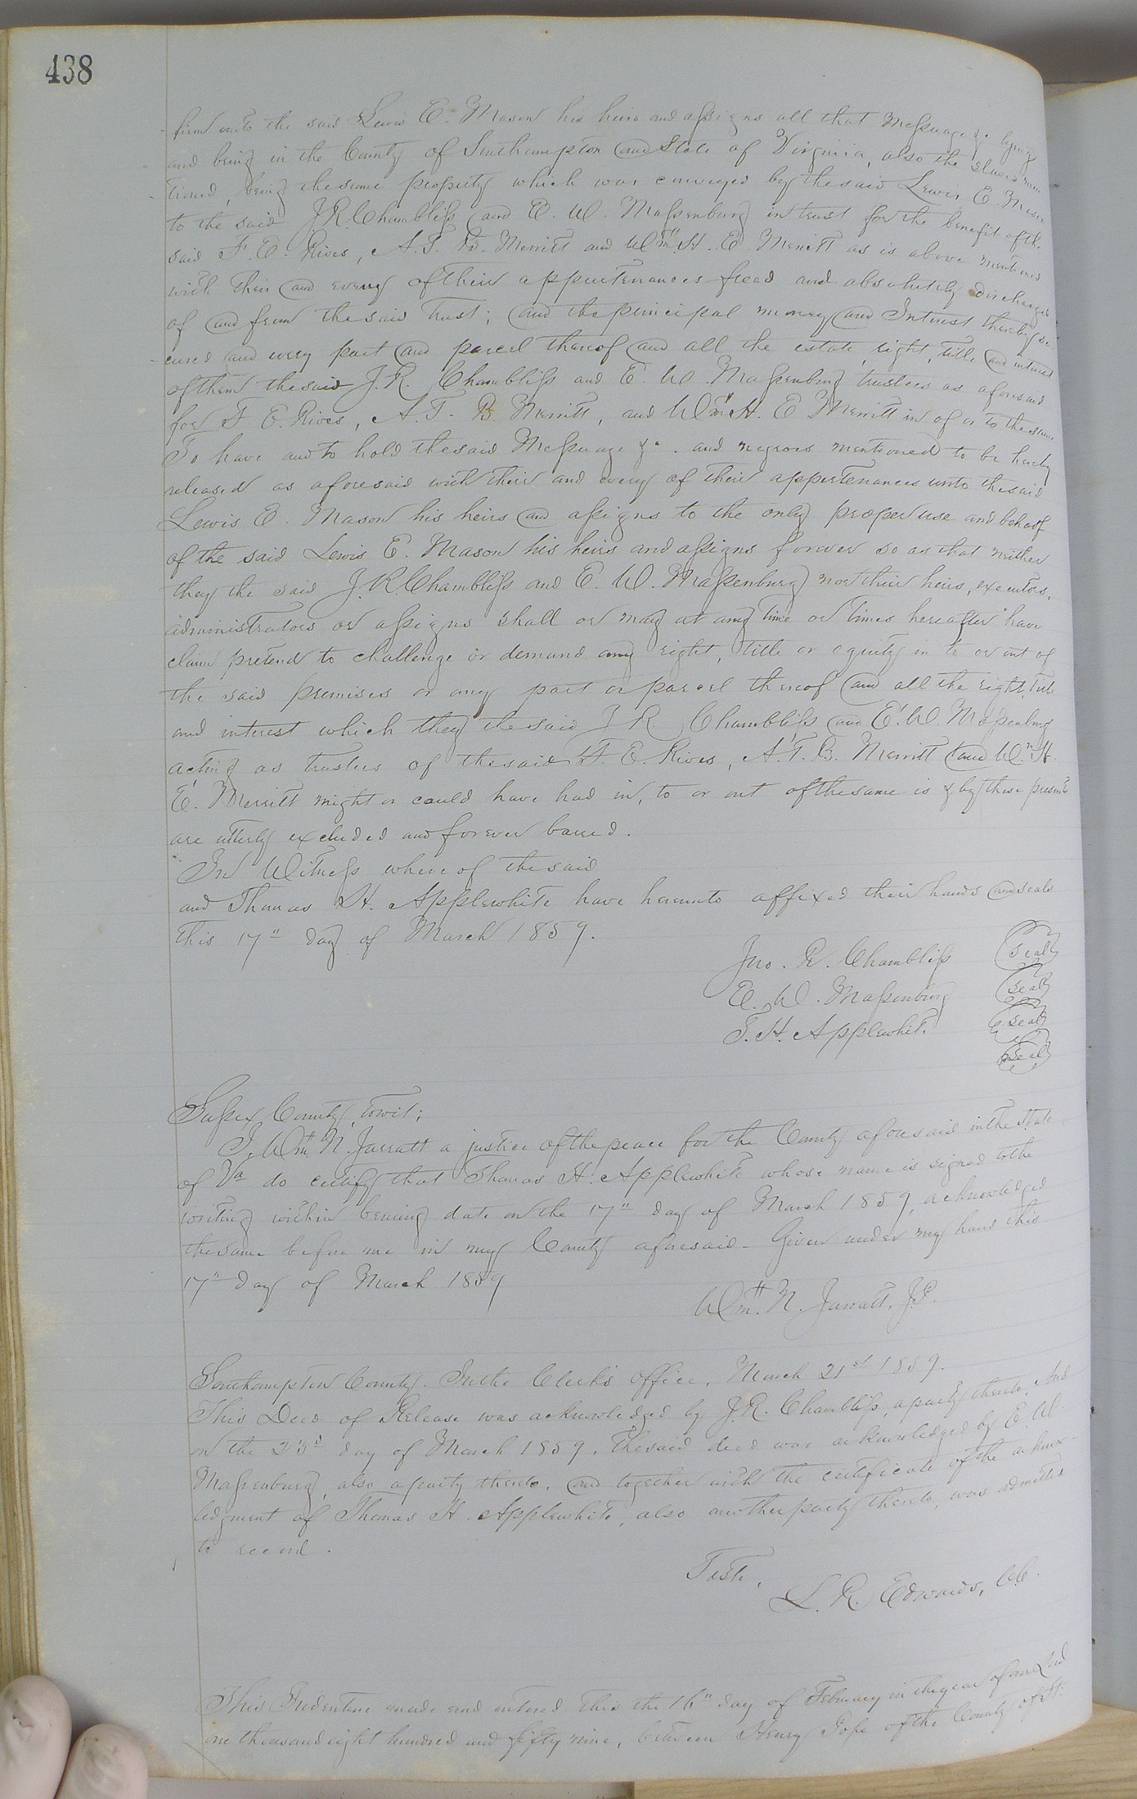 438
firm unto the said Lewis E. Mason his heirs and assigns all that Messuage &c lying
and being in the County of Southampton and State of Virginia, also the slaves men
tioned, being the same property which was conveyed by the said Lewis E. Mason
to the said J. R. Chambliss and E. W. Massenburg in trust for the benefit of the
said F. E. Rives, A. T. B. Merritt and Wm. H. E. Merritt as is above mentioned
with their and every of their appurtenances freed and absolutely discharged
of and from the said trust; and the principal money and Interest thereby se
cured and every part and parcel thereof and all the estate, right, title and interest
of them the said J. R. Chambliss and E. W. Massenburg trustees as aforesaid
for F. E. Rives, A. T. B. Merritt, and Wm. H. E Merritt in of or to the same
To have and to hold the said Messuage &c. and negroes mentioned to be hereby
released as aforesaid with their and every of their appertenances unto the said
Lewis E. Mason his heirs and assigns to the only proper use and behoof
of the said Lewis E. Mason his heirs and assigns forever so as that neither
they the said J. R. Chambliss and E. W. Massenburg nor their heirs, executors,
administrators or assigns shall or may at any time or times hereafter have
claim pretend to challenge or demand any right, title or equity in to or out of
the said premises or any part or parcel thereof and all the right, title
and interest which they the said J R Chambliss and E. W. Massenburg
acting as trustees of the said F. E. Rives, A. T. B. Merritt and Wm. H.
E. Merritt might or could have had in, to or out of the same is & by these presents
are utterly excluded and forever barred.
In Witness whereof the said
and Thomas H. Applewhite have hereunto affixed their hands and seals
this 17th day of March 1859.
Jno. R. Chambliss (seal)
E. W. Massenburg (seal)
T. H. Applewhite (seal)
(seal)
Sussex County, towit;
I, Wm. N. Jarratt a justice of the peace for the County aforesaid in the State
of Va do certify that Thomas H. Applewhite whose name is signed to the
writing within bearing date on the 17th day of March 1859, acknowledged
the same before me in my County aforesaid - Given under my hand this
17th day of March 1859
Wm. N. Jarratt, J.P.
Southampton County. In the Clerk's office, March 21st 1859.
This Deed of Release was acknowledged by J. R. Chambliss, a party thereto. And
on the 23d day of March 1859. The said deed was acknowledged by E. W.
Massenburg, also a party thereto, and together with the certificate of the acknow
ledgment of Thomas H. Applewhite, also another party thereto, was admitted
to record.
Teste,
L. R. Edwards, C.C.
This Indenture made and entered this the 16th day of February in the year of our Lord
one thousand eight hundred and fifty nine, between Henry Pope of the County of